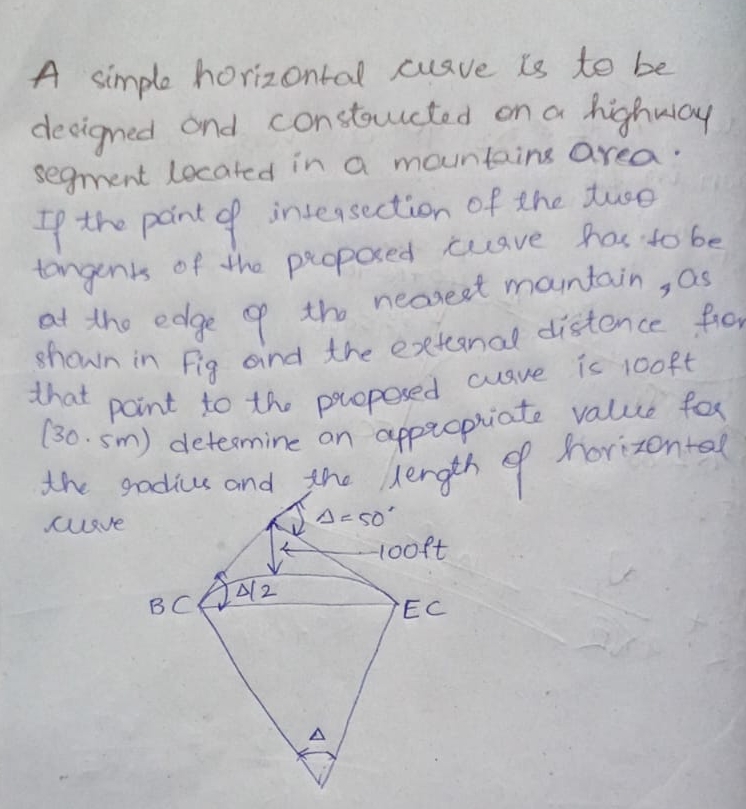 A simple horizontal curve is to be
designed and constructed on a highway
segment located in a mountains area.
If the point of intersection of the two
tangents of the proposed curve has to be
at the edge of the nearest mountain, as
shown in Fig and the external distence from
that point to the proposed curve is 100ft
(30.5m) determine an appropriate value for
the radius and the length of horizontal
curve
Δ=50°
100ft
Δ/2
BC
EC
Δ